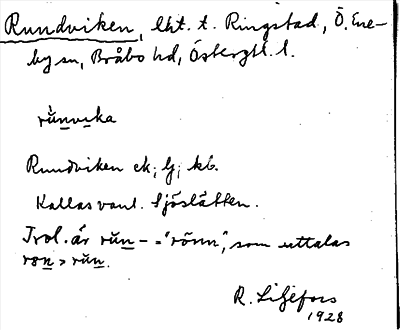 Rundviken, lht. t. Ringstad, Ö. Ene-
by sn, Bråbo hd, Östergtl. l.
rùnvika
Rundviken ek; Gj; kb.
Kallas vanl. Sjöslätten.
Trol. är run- = "rönn", som uttalas
ron > run.
R. Liljefors
1928